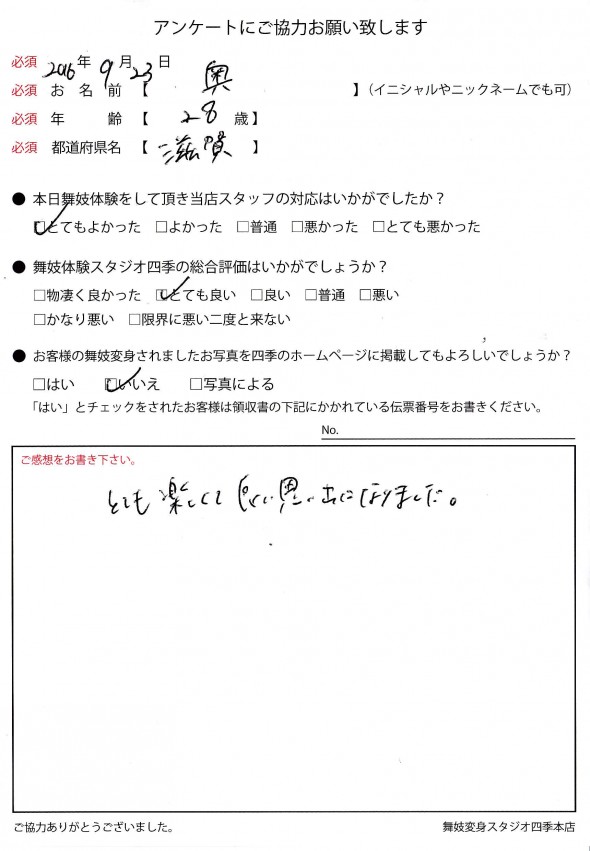 アンケートにご協力お願い致します
必須 2016年 9月 23日
必須 お名前【 奥 】（イニシャルやニックネームでも可）
必須 年齢【 28 歳】
必須 都道府県名【 滋賀 】
● 本日舞妓体験をして頂き当店スタッフの対応はいかがでしたか？
☑とてもよかった □よかった □普通 □悪かった □とても悪かった
● 舞妓体験スタジオ四季の総合評価はいかがでしょうか？
□物凄く良かった ☑とても良い □良い □普通 □悪い
□かなり悪い □限界に悪い二度と来ない
● お客様の舞妓変身されましたお写真を四季のホームページに掲載してもよろしいでしょうか？
□はい ☑いいえ □写真による
「はい」とチェックをされたお客様は領収書の下記にかかれている伝票番号をお書きください。
No.
ご感想をお書き下さい。
とても楽しくて良い思い出になりました。
ご協力ありがとうございました。
舞妓変身スタジオ四季本店